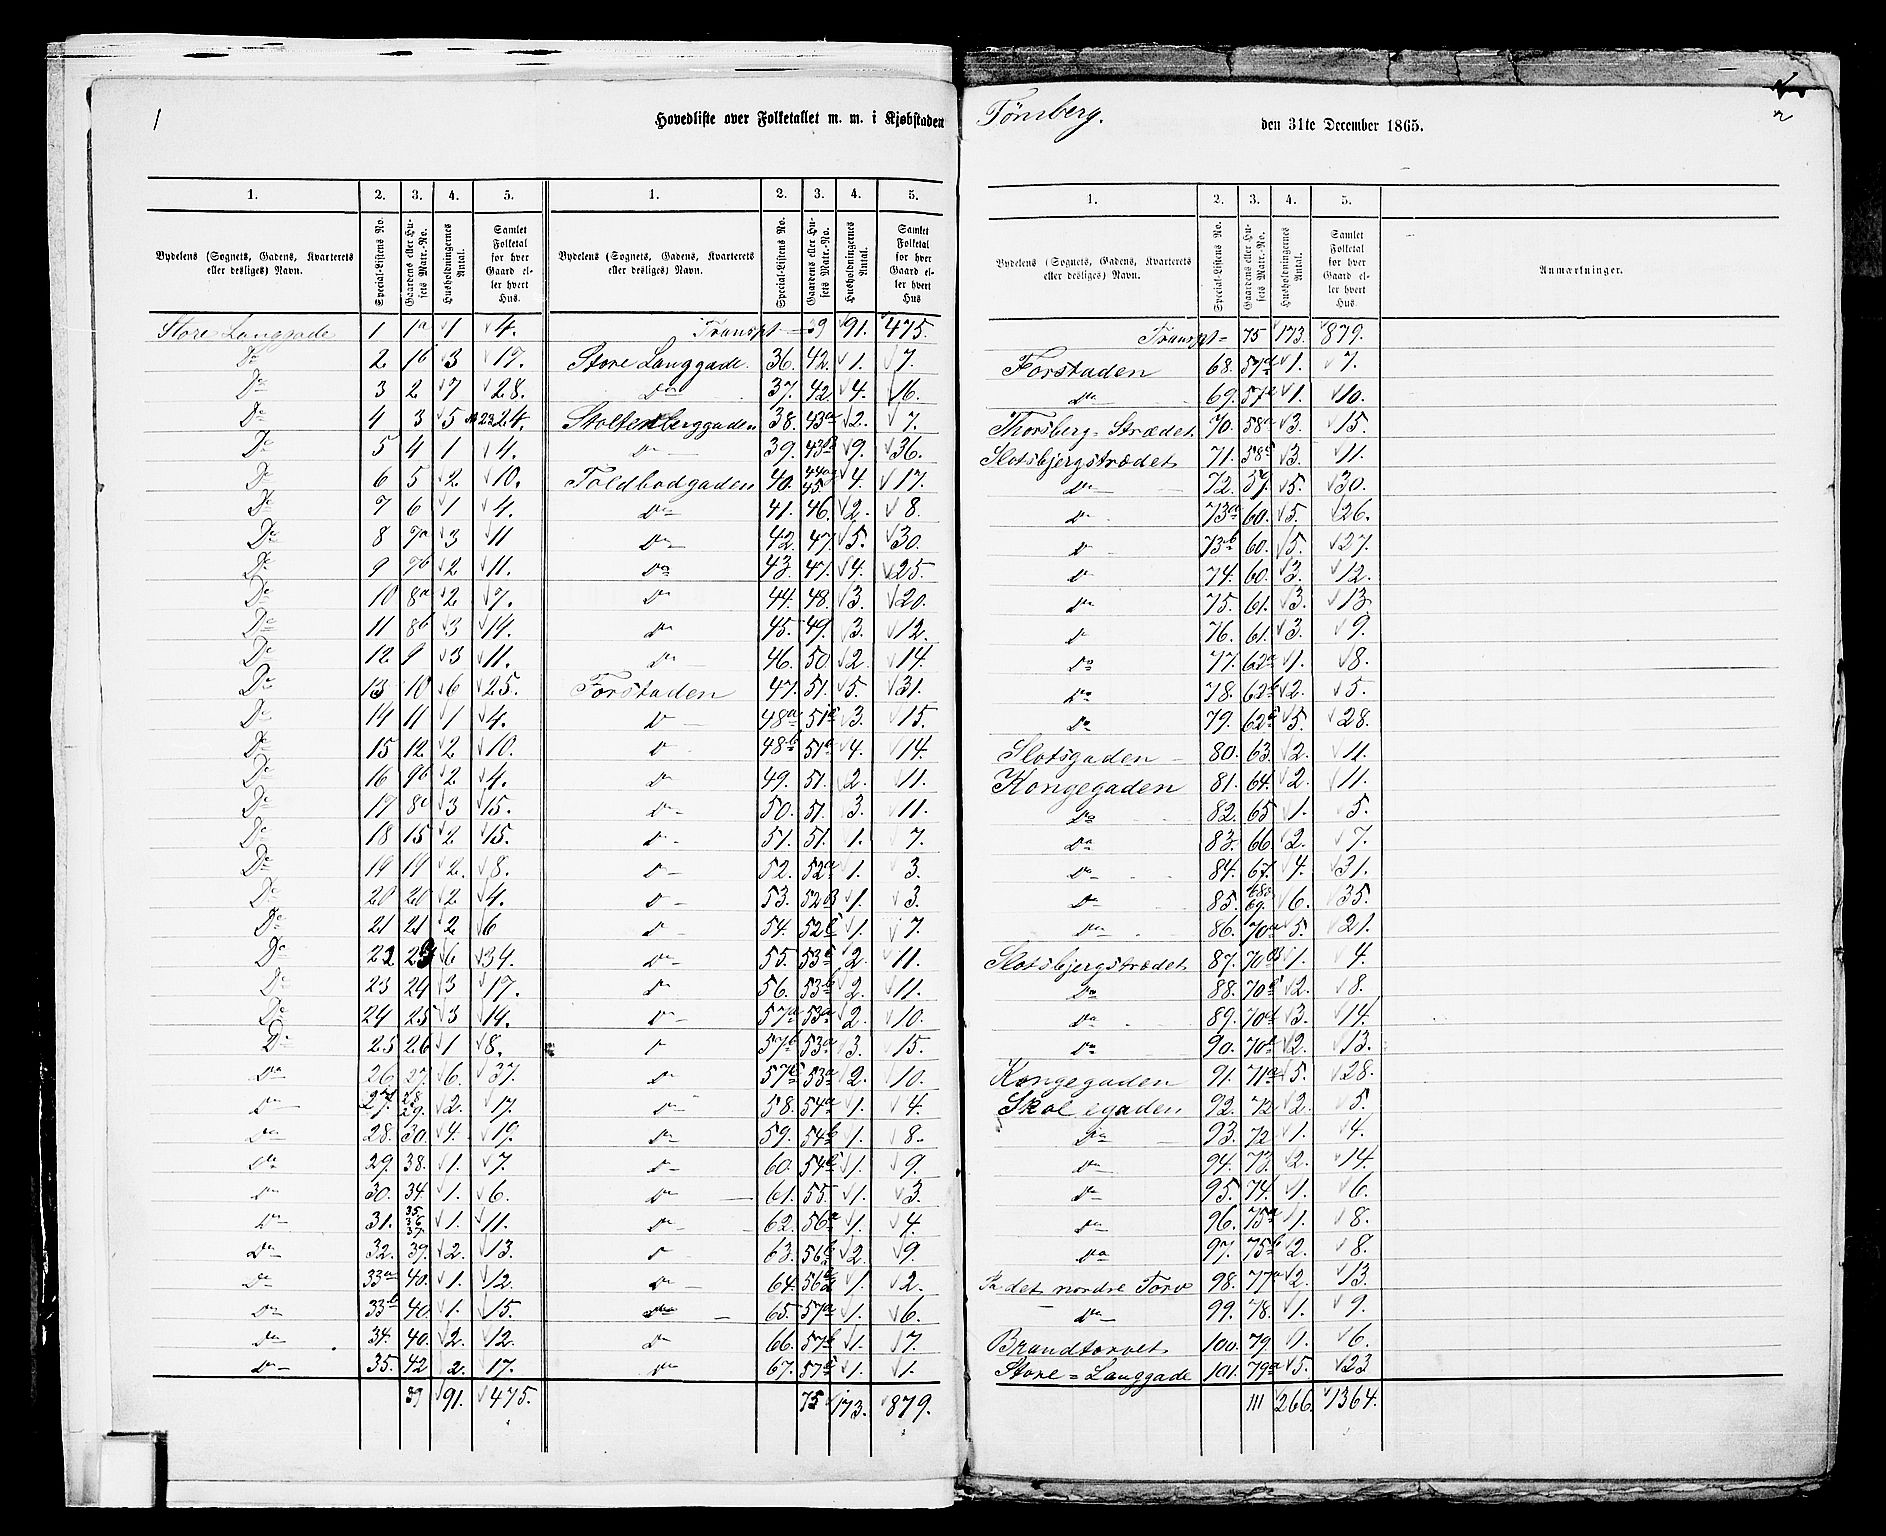 1
Hovedliste over Folketallet m. m. i Kjøbstaden Tönsberg. den 31te December 1865.
2
1. 2. 3. 4. 5. 1. 2. 3. 4. 5.
Bydelens (Sognets, Gadens, Kvarterets eller desliges) Navn. Special-Listens No. Gaardens eller Husets Matr.-No. Husholdningernes Antal. Samlet Folketal for hver Gaard eller hvert Hus. Bydelens (Sognets, Gadens, Kvarterets eller desliges) Navn. Special-Listens No. Gaardens eller Husets Matr.-No. Husholdningernes Antal. Samlet Folketal for hver Gaard eller hvert Hus
Store Langgade 1 1a 1 4. Transpt 39 91. 475.
Do 2 1b 3 17. Store Langgade. 36. 42. 1. 7.
Do 3 2 7 28. Do 37. 42. 4. 16.
Do 4 3 5 24. Stoltenberggaden 38. 43a 2. 7.
Do 5 4 1 4. Do 39. 43B 9. 36.
Do 6 5 2 10. Toldbodgaden 40. 44a 45. 4. 17.
Do 7 6 1 4. Do 41. 46. 2. 8.
Do 8 7a 3 11 Do 42. 47. 5. 30.
Do 9 7b 2 11. Do 43. 47. 4. 25.
Do 10 8a 2 7. Do 44. 48. 3. 20.
Do 11 8b 3 14. Do 45. 49. 3. 12.
Do 12 9 3 11. Do 46. 50 2. 14.
Do 13 10 6 25. Forstaden 47. 51. 5. 31.
Do 14 11 1 4. D 48a 51a 3. 15.
Do 15 12 2 10. D 48b 51a 4. 14.
Do 16 9b 2 4. D 49. 51. 2. 11.
Do 17 8c 3 15. D 50. 51. 3. 11.
Do 18 15 2 15. D 51. 51. 1. 7.
Do 19 19 2. 8. D 52. 52a 1. 3.
Do 20 20 2 4. D 53. 52B 1. 3.
Do 21 21 2 6 D 54. 52c 1. 7.
Do 22 23 6 34. Do 55. 53a 2. 11.
Do 23 24 3 17. D 56. 53b 2. 11.
Do 24 25 3 14. D 57a 53a 2. 10.
Do 25 26 1 8. D 57b 53a 3. 15.
Do 26. 27. 6. 37. D 57c 53a 2. 10.
Do 27. 28. 29. 2. 17. D 58. 54a 1. 4.
Do 28. 30. 4. 19. Do 59. 54b 1. 8.
Do 29. 38. 1. 7. D 60. 54c 1. 9.
Do 30. 34. 1. 6. Do 61. 55. 1. 3.
Do 31. 35. 36. 37. 1. 11. Do 62. 56a 1. 4.
Do 32. 39. 2. 13. D 63. 56b 2. 9.
Do 33a 40. 1. 12. Do 64. 56c 1. 2.
Do 33b 40. 1. 15. Do 65. 57a 1. 6.
Do 34. 40. 2. 12. Do 66. 57b 1. 7.
Do 35. 42 2. 17. Do 67. 57c 1. 1.
39 91. 475. 75 173. 879.
1. 2. 3. 4. 5.
Bydelens (Sognets, Gadens, Kvarterets eller desliges) Navn. Special-Listens No. Gaardens eller Husets Matr.-No. Husholdningernes Antal. Samlet Folketal for hver Gaard eller hvert Hus. Anmærkninger.
Transpt 75 173. 879.
Forstaden 68. 57d 1. 7.
Do 69. 57e 1. 10.
Thorsberg-Strædet 70. 58a 3. 15.
Slotsbjergstrædet 71. 58b 3. 11.
Do 72. 57. 5. 30.
D 73a 60. 5. 26.
D 73b 60. 5. 27.
D 74. 60. 3. 12.
Do 75. 61. 3. 13.
D 76. 61. 3. 9.
Do 77. 62a 1. 8.
Do 78. 62b 2. 5.
Do 79. 62c 5. 28.
Slotsgaden 80. 63 2. 11.
Kongegaden 81. 64. 2. 11.
Do 82. 65 1. 5.
Do 83. 66 2. 7.
Do 84. 67. 4. 31.
Do 85. 68. 69. 6. 35.
Do 86. 70a 5. 21.
Slotsbjergstrædet 87. 70B 1. 4.
Do 88. 70c 2. 8.
Do 89. 70d 3. 14.
Do 90. 70e 2. 13.
Kongegaden 91. 71a 5. 28.
Skolegaden 92. 72 2. 5.
Do 93. 72 1. 4.
Do 94. 73. 2. 14.
Do 95. 74. 1. 6.
Do 96. 75a 1. 8.
Do 97. 75b 2. 8.
Pa det nordre Torv 98. 77a 2. 13.
Do 99. 78. 1. 9.
Brandtorvet 100. 79. 1. 6.
Store-Langgade 101. 79a 5. 23
111 266. 1364.